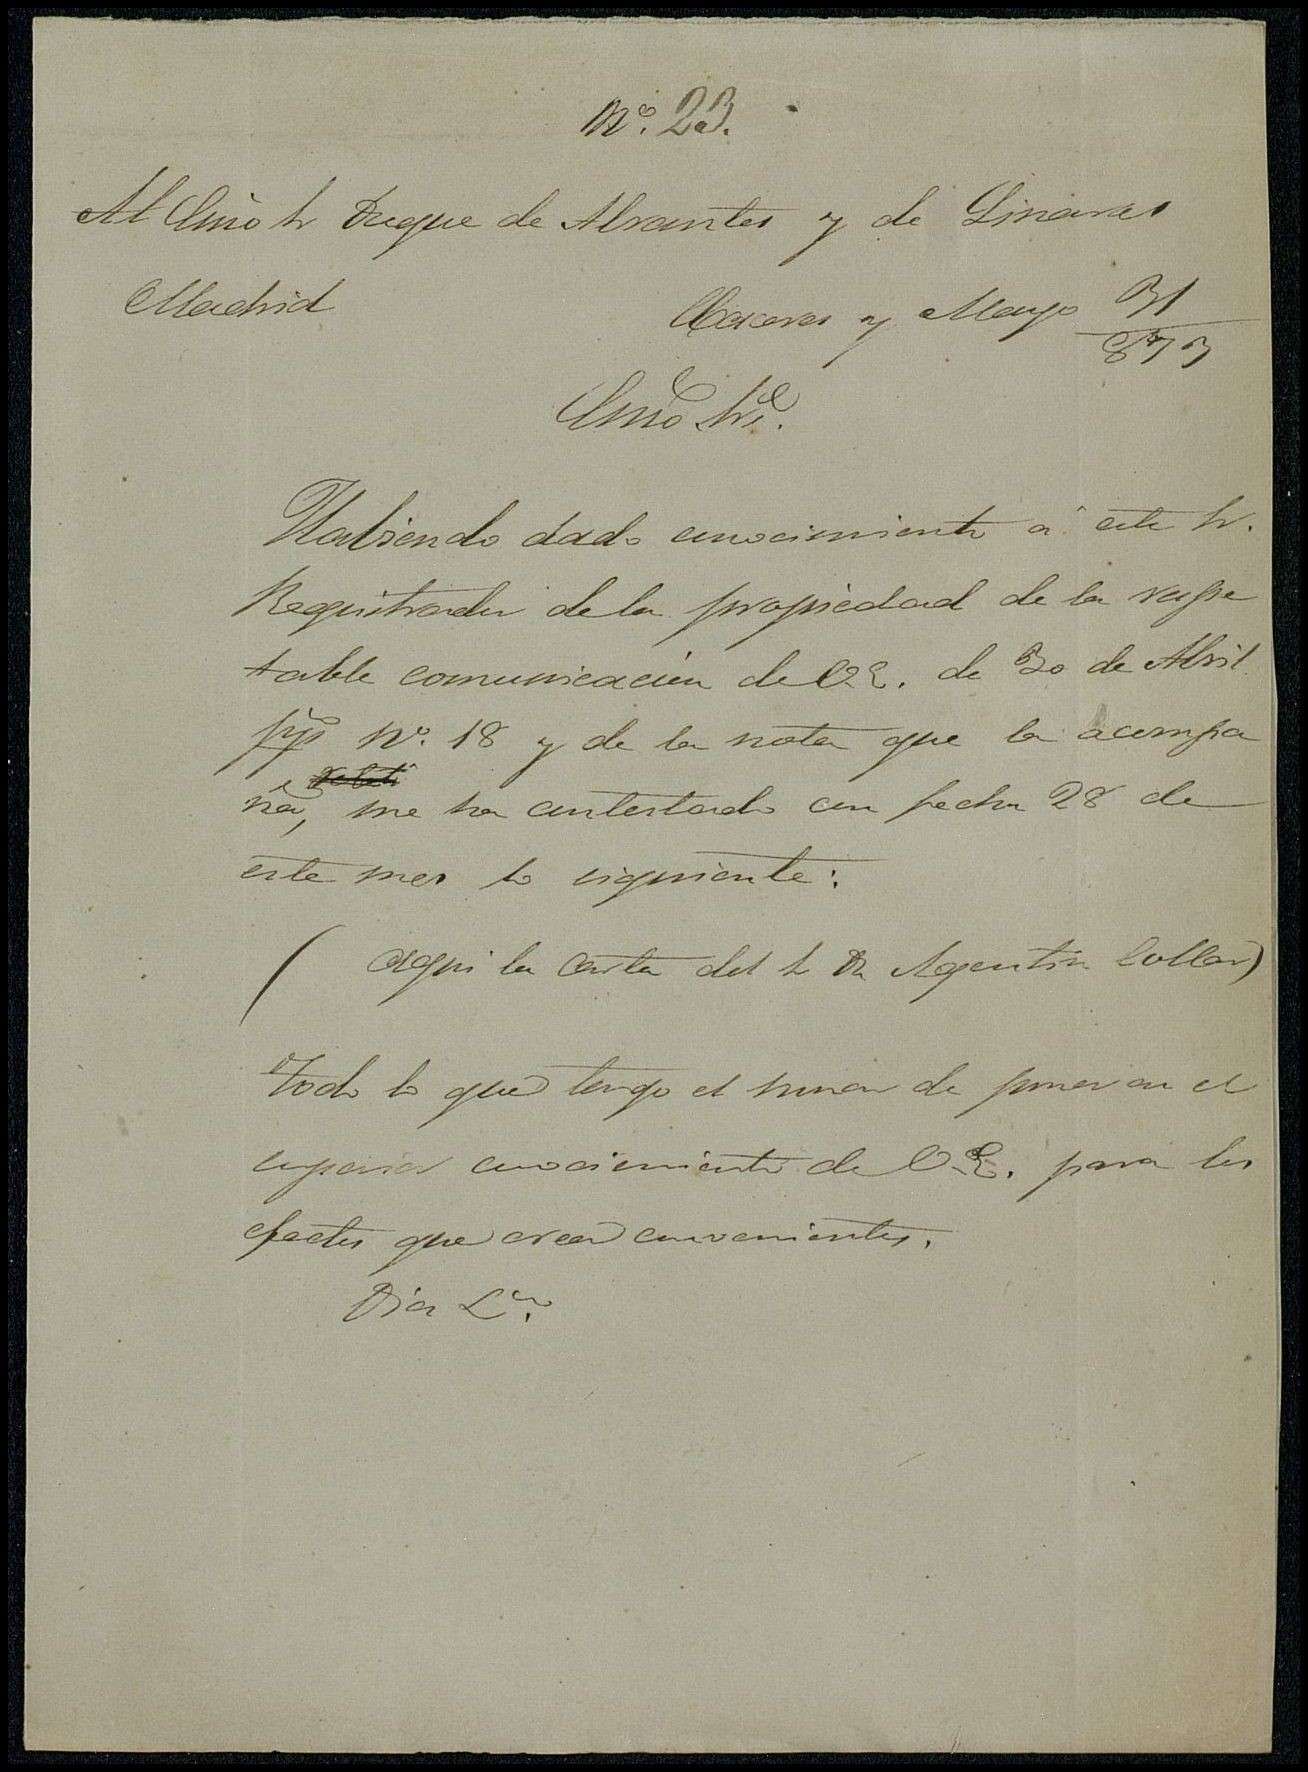 Nº. 23.
Al Exmo Sr Duque de Abrantes y de Linares
Madrid
Caceres y Mayo 31
873
Exmo Sr.
Habiendo dado conocimiento á este Sr.
Registrador de la propiedad de la respe
table comunicacion de V.E. de 30 de Abril
Nº. 18 y de la nota que la acompa
ña, me ha contestado con fecha 28 de
este mes lo siguiente:
(aqui la carta del Sr Dn Agustin Collar)
Todo lo que tengo el honor de poner en el
superior conocimiento de V.E. para los
efectos que crea convenientes.
Dios